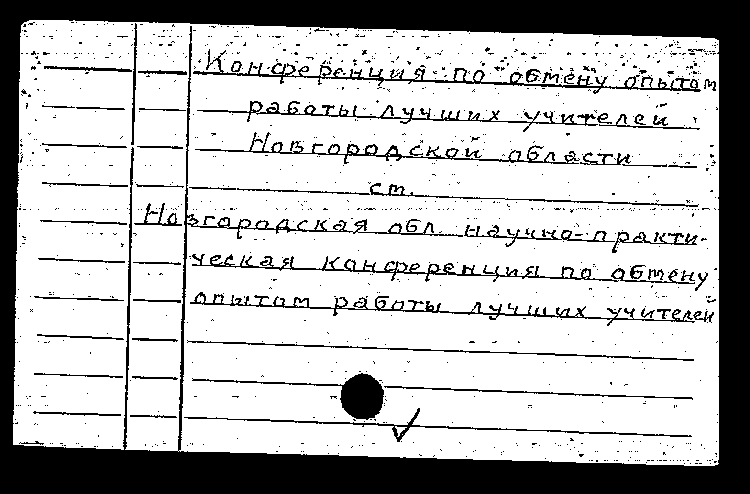 Конференция по обмену опытом
работы лучших учителей
Новгородской области
ст.
Новгородская обл. научно-практи-
ческая конференция по обмену
опытом работы лучших учителей